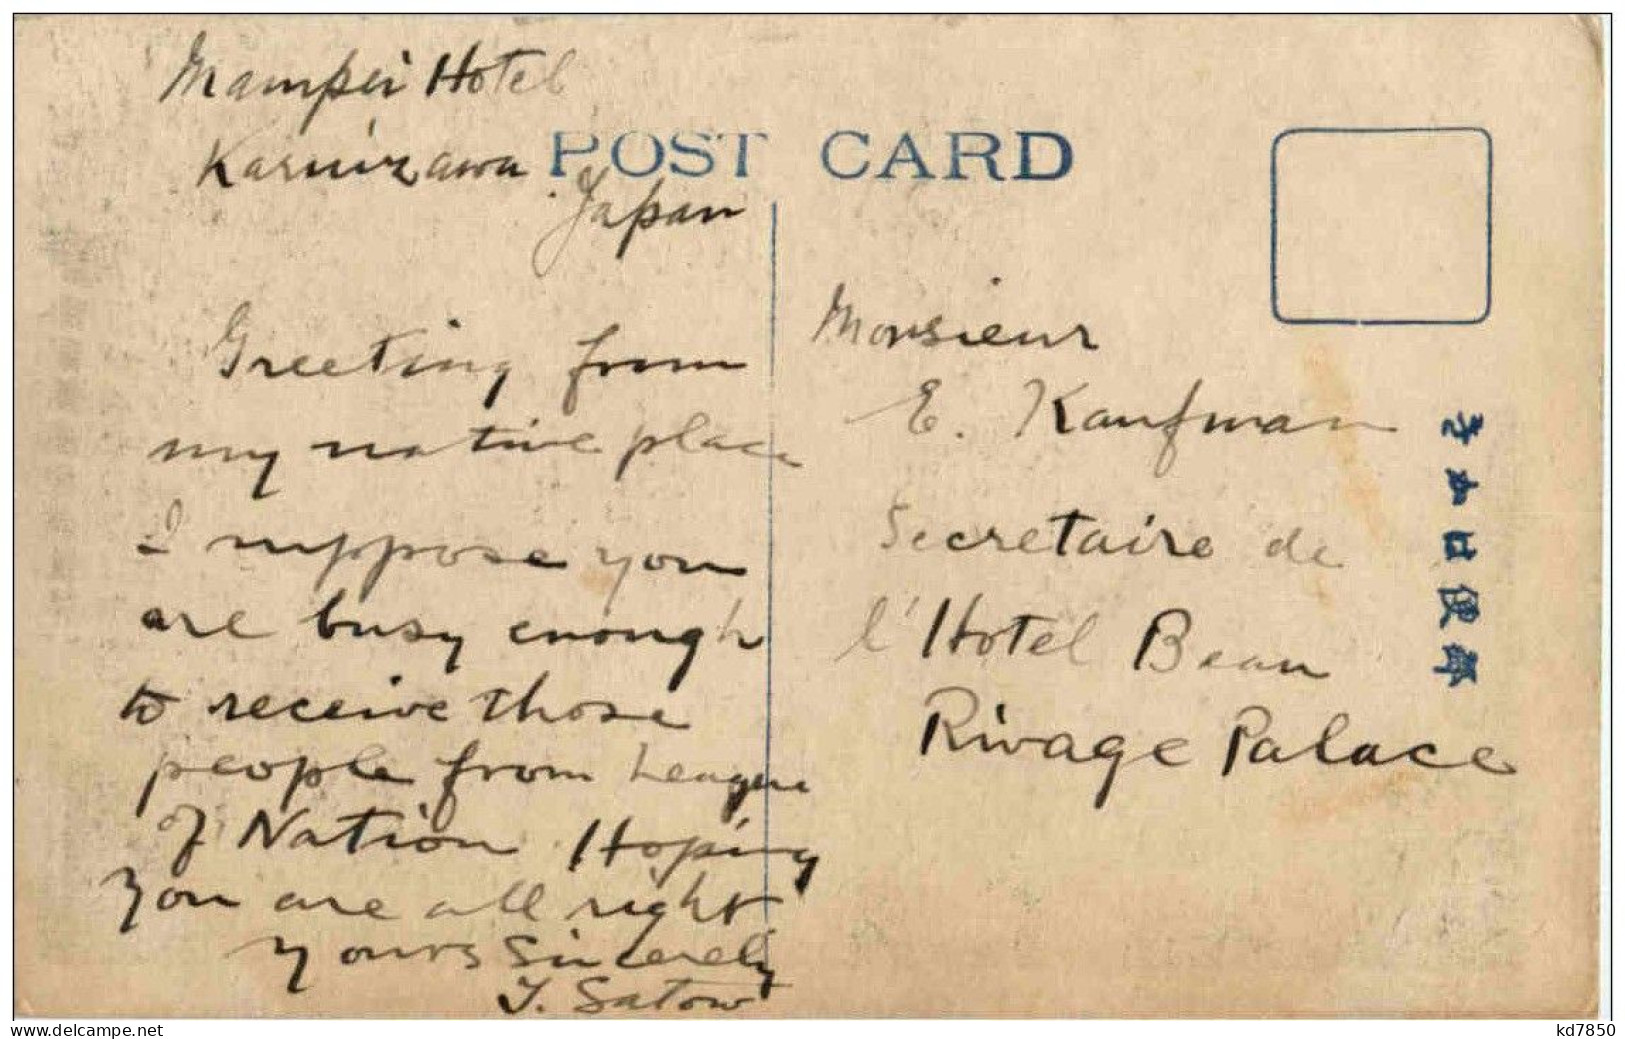 Mampei Hotel
Karuizawa
Japan
POST CARD
Greeting from
my native place
I suppose you
are busy enough
to receive those
people from League
of Nation Hoping
you are all right
yours Sincerely
Y. Satow
Monsieur
E. Kaufman
Secretaire de
l'Hotel Beau
Rivage Palace
きかロ便郵
www.delcampe.net
kd7850